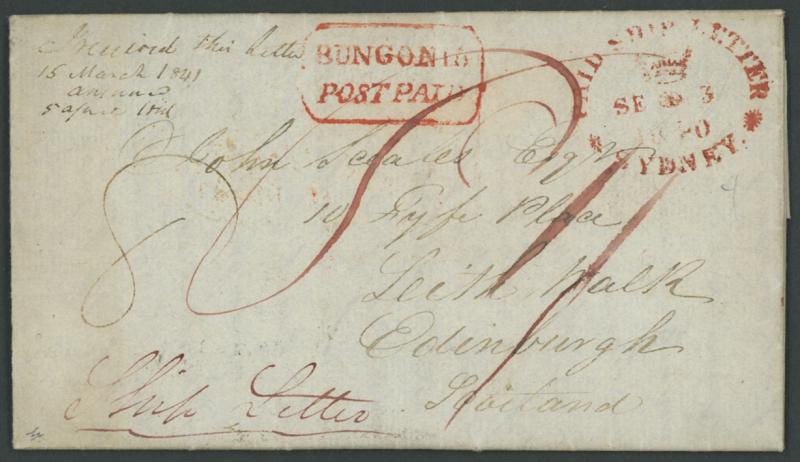 Received this letter
15 March 1841
answered
5 April Do
BUNGONIA
POST PAID
PAID SHIP LETTER
SE 3
1840
SYDNEY.
John Scales Esqr
10 Fyfe Place
Leith Walk
Edinburgh
Scotland
Ship Letter